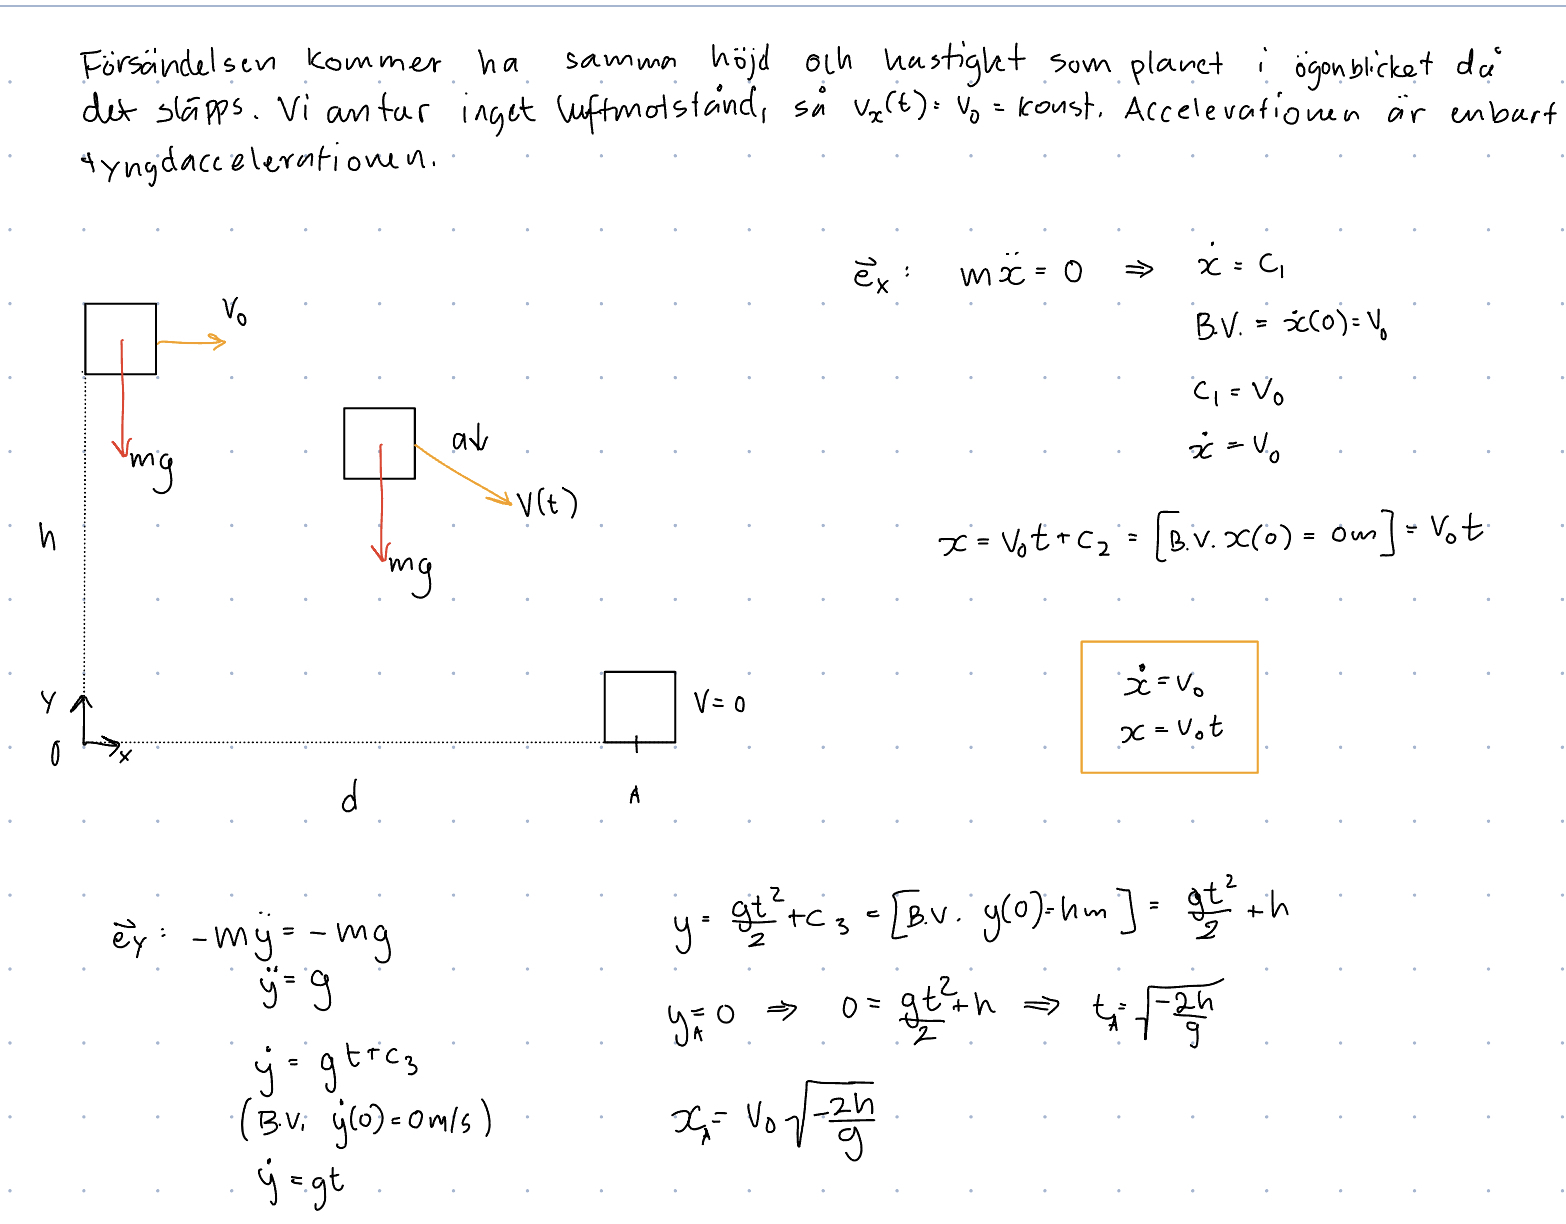 Försändelsen kommer ha samma höjd och hastighet som planet i ögonblicket då
det släpps. Vi antar inget luftmotstånd, så vₓ(t) = v₀ = konst. Accelerationen är enbart
tyngdaccelerationen.
e⃗ₓ : mẍ = 0 ⇒ ẋ = C₁
B.V. = ẋ(0) = V₀
C₁ = V₀
ẋ = V₀
x = V₀t + C₂ = [B.V. x(0) = 0m] = V₀t
ẋ = V₀
x = V₀t
V₀
mg
a↓
V(t)
mg
h
Y
0
x
V = 0
d
A
e⃗ᵧ : -mÿ = -mg
ÿ = g
ẏ = gt + C₃
(B.V. ẏ(0) = 0 m/s)
ẏ = gt
y = gt²/2 + C₃ = [B.V. y(0) = hm] = gt²/2 + h
y_A = 0 ⇒ 0 = gt²/2 + h ⇒ t_A = √(-2h/g)
x_A = V₀ √(-2h/g)